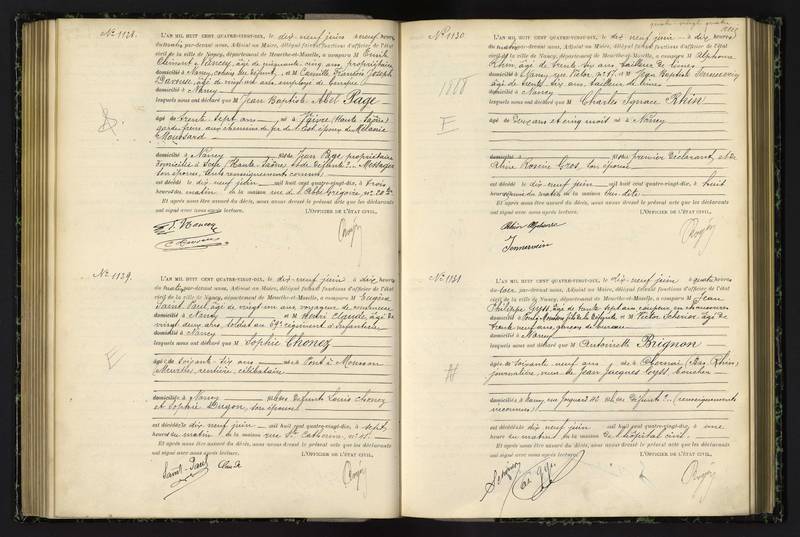 No 1128.
L'AN MIL HUIT CENT QUATRE-VINGT-DIX, le dix-neuf juin à neuf heures
du matin par-devant nous, Adjoint au Maire, délégué faisant fonctions d'officier de l'état
civil de la ville de Nancy, département de Meurthe-et-Moselle, a comparu M Emile
Clément Vancey, âgé de cinquante cinq ans, propriétaire
domicilié à Nancy, du défunt, et M Camille François Joseph
âgé de ans employé de
domicilié à Nancy
lesquels nous ont déclaré que M Jean Baptiste Abel Page
âgé de trente sept ans né à Vaivre (Haute-Saône)
garde frein aux chemins de fer de l'Est époux de Mélanie
Moussard
domicilié à Nancy fils de Jean Page propriétaire
domicilié à (Haute-Saône) et de défunte ?
son épouse,
est décédé le dix-neuf juin mil huit cent quatre-vingt-dix, à trois
heures du matin en la maison rue de l'Abbé Grégoire, no 20
Et après nous être assuré du décès, nous avons dressé le présent acte que les déclarants
ont signé avec nous après lecture. L'OFFICIER DE L'ÉTAT CIVIL,
No 1129.
L'AN MIL HUIT CENT QUATRE-VINGT-DIX, le dix-neuf juin à dix heures
du matin par-devant nous, Adjoint au Maire, délégué faisant fonctions d'officier de l'état
civil de la ville de Nancy, département de Meurthe-et-Moselle, a comparu M Eugène
Saint Paul, âgé de vingt un ans, voyageur de commerce
domicilié à Nancy et M Henri Claude, âgé de
vingt deux ans, soldat au 69e régiment d'Infanterie
domicilié à Nancy
lesquels nous ont déclaré que M Sophie Chonez
âgée de soixante dix ans née à Pont à Mousson
(Meurthe), rentière, célibataire
domiciliée à Nancy fille de défunts Louis Chonez
et Sophie Dugon, son épouse
est décédée le dix-neuf juin mil huit cent quatre-vingt-dix, à sept
heures du matin en la maison rue Ste Catherine, no 15.
Et après nous être assuré du décès, nous avons dressé le présent acte que les déclarants
ont signé avec nous après lecture. L'OFFICIER DE L'ÉTAT CIVIL,
Saint-Paul
quatre-vingt quatre
No 1130
L'AN MIL HUIT CENT QUATRE-VINGT-DIX, le dix-neuf juin à dix heures
du matin par-devant nous, Adjoint au Maire, délégué faisant fonctions d'officier de l'état
civil de la ville de Nancy, département de Meurthe-et-Moselle, a comparu M Alphonse
Rhin, âgé de trente six ans, tailleur de limes
domicilié à Nancy, rue Victor no 17, et M Jean Baptiste
âgé de trente six ans, tailleur de limes
domicilié à Nancy
1888
lesquels nous ont déclaré que M Charles Ignace Rhin
E
âgé de Deux ans et cinq mois né à Nancy
domicilié à Nancy fils du premier Déclarant, et de
Rosine Gros, son épouse
est décédé le dix-neuf juin mil huit cent quatre-vingt-dix, à huit
heures du matin en la maison sus dite.
Et après nous être assuré du décès, nous avons dressé le présent acte que les déclarants
ont signé avec nous après lecture. L'OFFICIER DE L'ÉTAT CIVIL,
Rhin Alphonse
No 1131
L'AN MIL HUIT CENT QUATRE-VINGT-DIX, le dix-neuf juin à quatre heures
du soir par-devant nous, Adjoint au Maire, délégué faisant fonctions d'officier de l'état
civil de la ville de Nancy, département de Meurthe-et-Moselle, a comparu M Jean
Philippe Gyss, âgé de trente sept ans coupeur en chaussures
domicilié à Nancy, fils de la Défunte, et M Victor âgé de
trente neuf ans, garçon de bureau
domicilié à Nancy
lesquels nous ont déclaré que M Antoinette Brignon
âgée de soixante neuf ans née à Obernai (Bas-Rhin)
journalière, veuve de Jean Jacques Gyss,
domiciliée à Nancy, rue 42 fille de Défunts ? (renseignements
inconnus)
est décédée le dix-neuf juin mil huit cent quatre-vingt-dix, à une
heure du matin en la maison de l'hôpital civil.
Et après nous être assuré du décès, nous avons dressé le présent acte que les déclarants
ont signé avec nous après lecture. L'OFFICIER DE L'ÉTAT CIVIL,